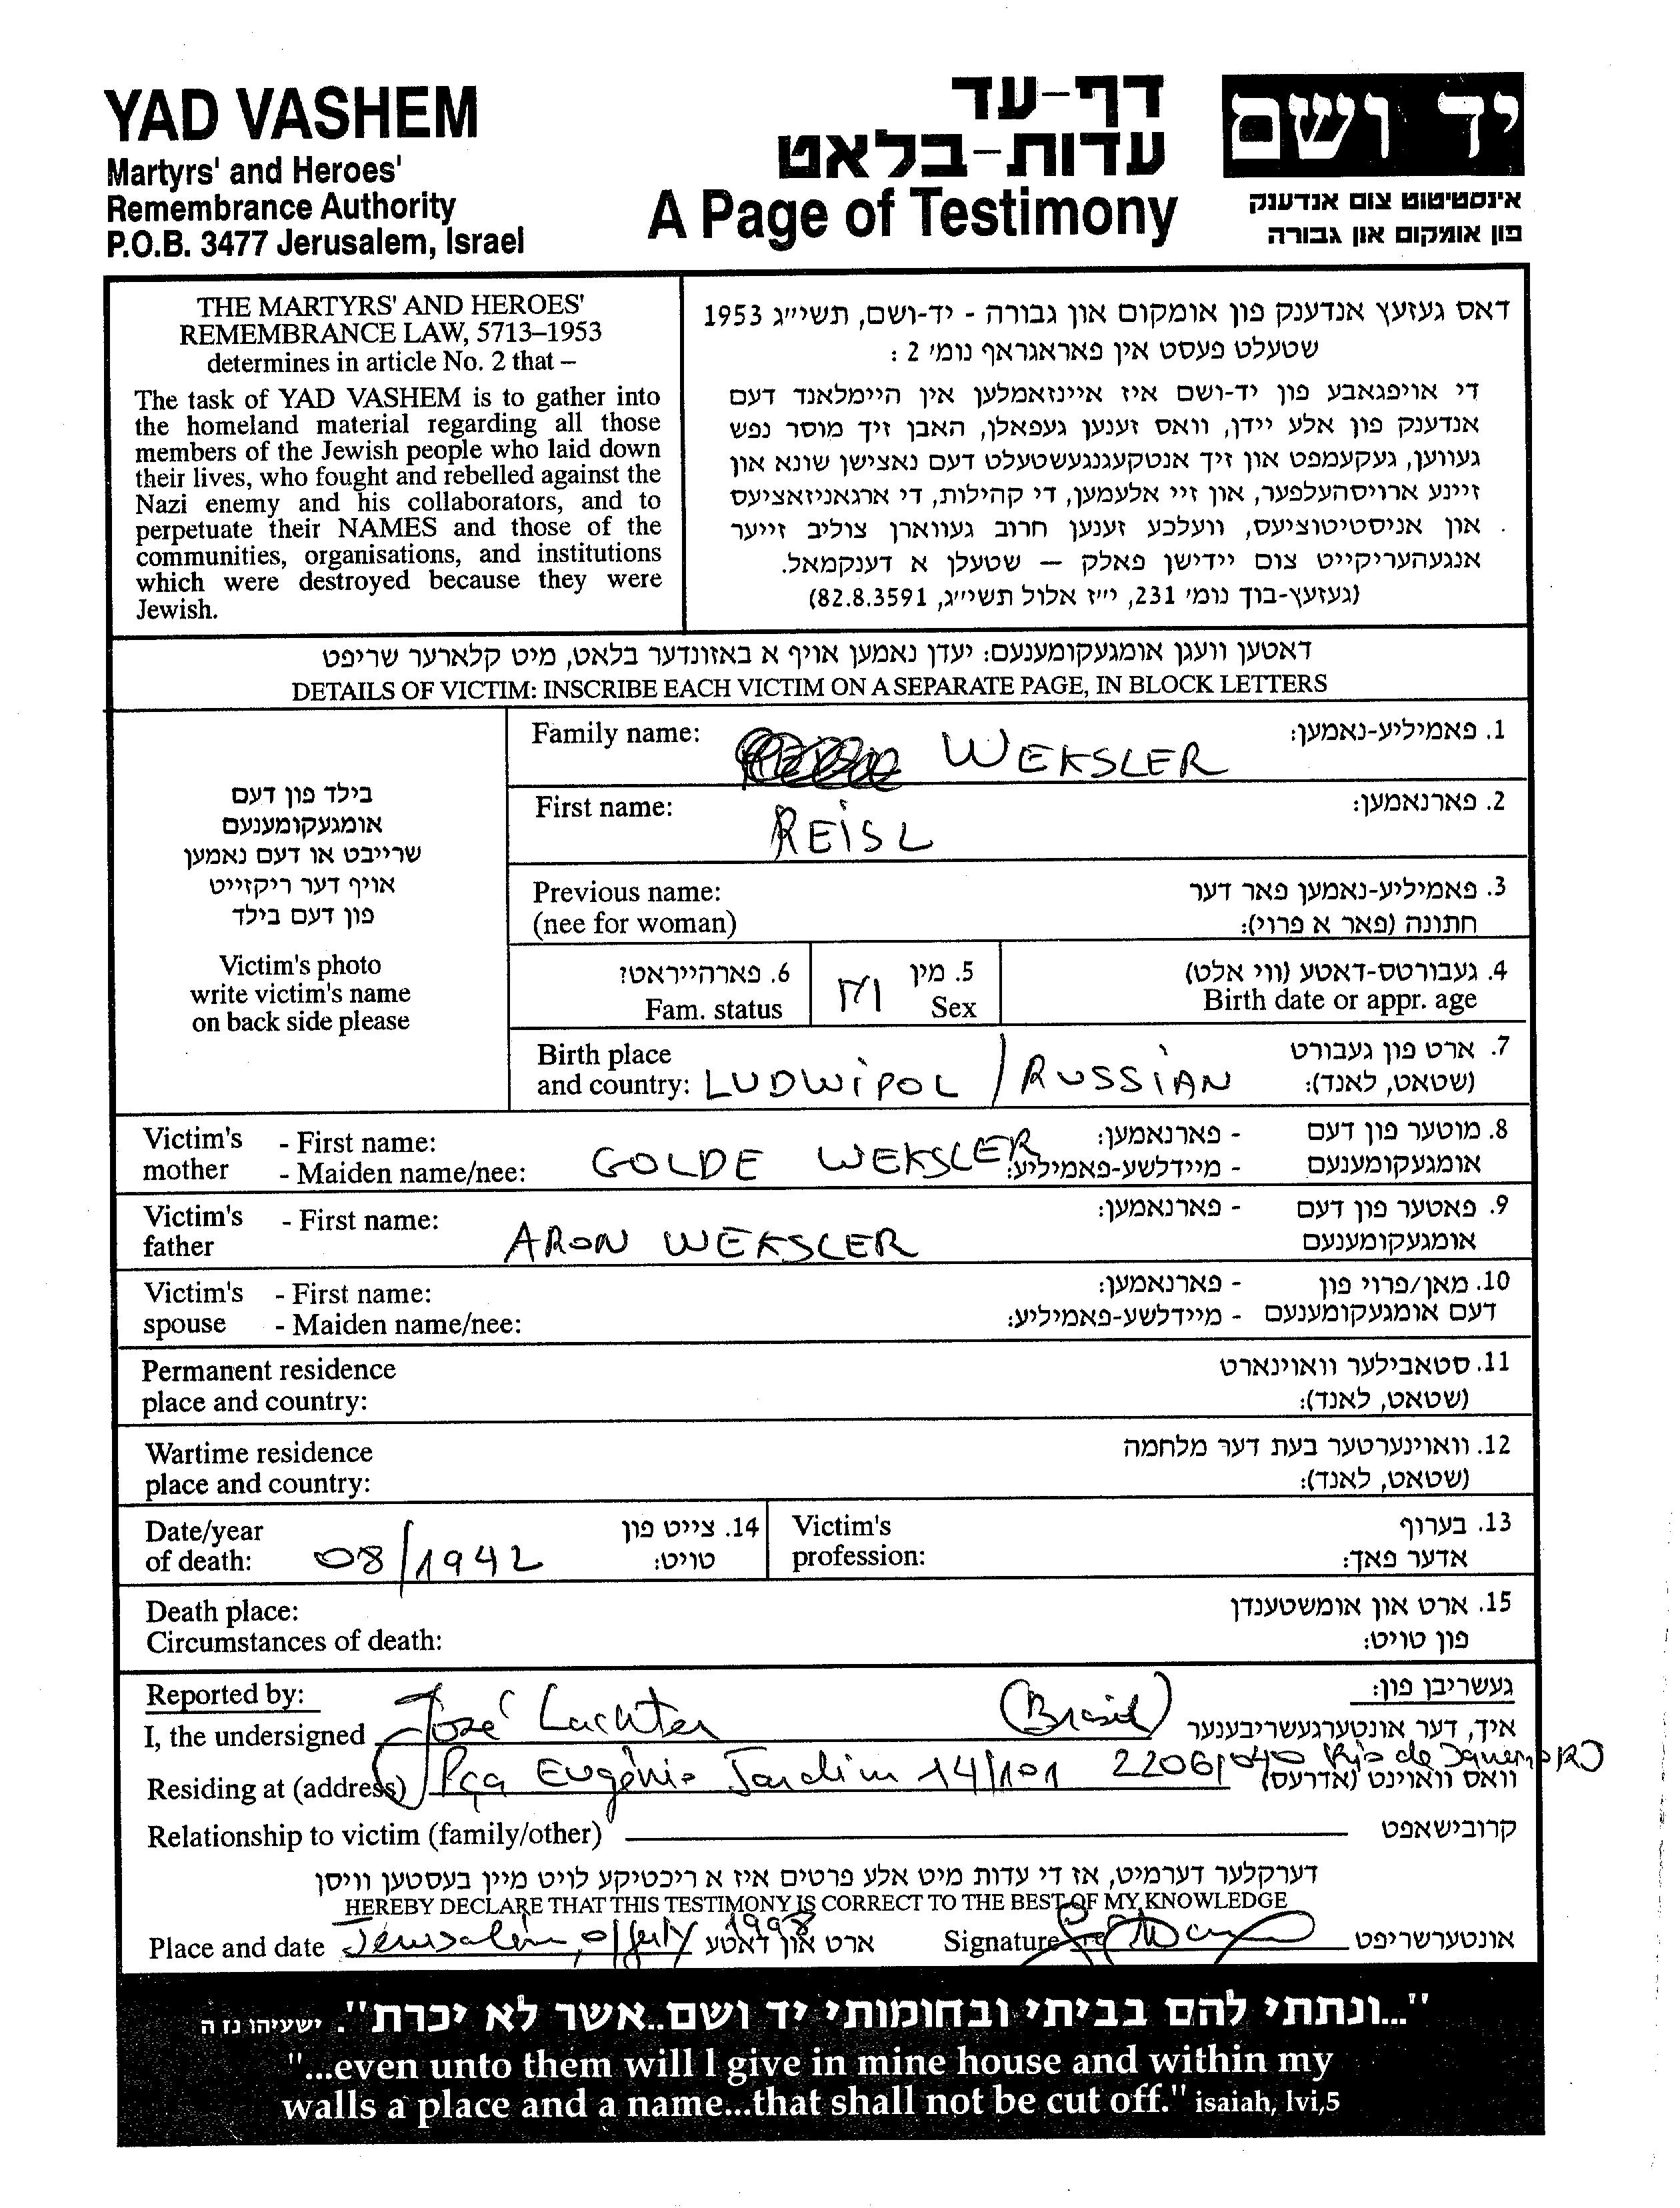 YAD VASHEM
Martyrs' and Heroes'
Remembrance Authority
P.O.B. 3477 Jerusalem, Israel
דף-עד
עדות-בלאט
A Page of Testimony
יד ושם
אינסטיטוט צום אנדענק
פון אומקום און גבורה
THE MARTYRS' AND HEROES'
REMEMBRANCE LAW, 5713–1953
determines in article No. 2 that –
The task of YAD VASHEM is to gather into
the homeland material regarding all those
members of the Jewish people who laid down
their lives, who fought and rebelled against the
Nazi enemy and his collaborators, and to
perpetuate their NAMES and those of the
communities, organisations, and institutions
which were destroyed because they were
Jewish.
דאס געזעץ אנדענק פון אומקום און גבורה - יד-ושם, תשי״ג 1953
שטעלט פעסט אין פאראגראף נומ׳ 2 :
די אויפגאבע פון יד-ושם איז איינזאמלען אין היימלאנד דעם
אנדענק פון אלע יידן, וואס זענען געפאלן, האבן זיך מוסר נפש
געווען, געקעמפט און זיך אנטקעגנגעשטעלט דעם נאצישן שונא און
זיינע ארויסהעלפער, און זיי אלעמען, די קהילות, די ארגאניזאציעס
און אניסטיטוציעס, וועלכע זענען חרוב געווארן צוליב זייער
אנגעהעריקייט צום יידישן פאלק — שטעלן א דענקמאל.
(געזעץ-בוך נומ׳ 231, י״ז אלול תשי״ג, 82.8.3591)
דאטען וועגן אומגעקומענעם: יעדן נאמען אויף א באזונדער בלאט, מיט קלארער שריפט
DETAILS OF VICTIM: INSCRIBE EACH VICTIM ON A SEPARATE PAGE, IN BLOCK LETTERS
בילד פון דעם
אומגעקומענעם
שרייבט או דעם נאמען
אויף דער ריקזייט
פון דעם בילד
Victim's photo
write victim's name
on back side please
Family name: WEKSLER 1. פאמיליע-נאמען:
First name: REISL 2. פארנאמען:
Previous name: 3. פאמיליע-נאמען פאר דער
(nee for woman) חתונה (פאר א פרוי):
6. פארהייראט? 5. מין 4. געבורטס-דאטע (ווי אלט)
Fam. status M Sex Birth date or appr. age
Birth place 7. ארט פון געבורט
and country: LUDWIPOL / RUSSIAN (שטאט, לאנד):
Victim's - First name: - פארנאמען: 8. מוטער פון דעם
mother - Maiden name/nee: GOLDE WEKSLER - מיידלשע-פאמיליע: אומגעקומענעם
Victim's - First name: - פארנאמען: 9. פאטער פון דעם
father ARON WEKSLER אומגעקומענעם
Victim's - First name: - פארנאמען: 10. מאן/פרוי פון
spouse - Maiden name/nee: - מיידלשע-פאמיליע: דעם אומגעקומענעם
Permanent residence 11. סטאבילער וואוינארט
place and country: (שטאט, לאנד):
Wartime residence 12. וואוינערטער בעת דער מלחמה
place and country: (שטאט, לאנד):
Date/year 14. צייט פון Victim's 13. בערוף
of death: 08/1942 טויט: profession: אדער פאך:
Death place: 15. ארט און אומשטענדן
Circumstances of death: פון טויט:
Reported by: געשריבן פון:
I, the undersigned José Lachter (Brasil) איך, דער אונטערגעשריבענער
Residing at (address) Pça Eugênio Jardim 14/101 22061040 Rio de Janeiro RJ וואס וואוינט (אדרעס)
Relationship to victim (family/other) קרובישאפט
דערקלער דערמיט, אז די עדות מיט אלע פרטים איז א ריכטיקע לויט מיין בעסטען וויסן
HEREBY DECLARE THAT THIS TESTIMONY IS CORRECT TO THE BEST OF MY KNOWLEDGE
Place and date Jerusalém, July 1998 ארט און דאטע Signature אונטערשריפט
"...ונתתי להם בביתי ובחומותי יד ושם..אשר לא יכרת". ישעיהו נז ה
"...even unto them will I give in mine house and within my
walls a place and a name...that shall not be cut off." isaiah, lvi,5